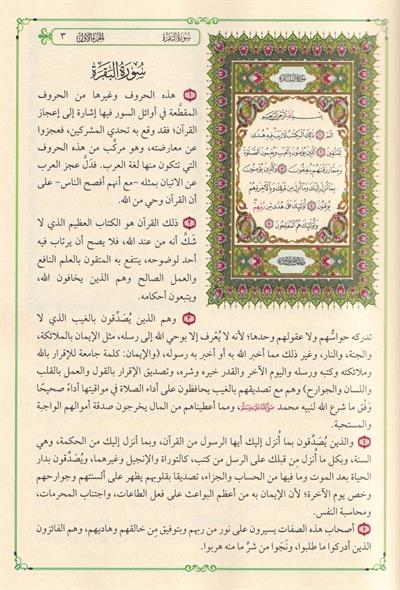 الجزء الأول
سورة البقرة
٣
سورة البقرة
بسم الله الرحمن الرحيم
الم ذلك الكتاب لا ريب فيه هدى
للمتقين الذين يؤمنون بالغيب ويقيمون الصلوة
ومما رزقنهم ينفقون والذين يؤمنون
بما أنزل إليك وما أنزل من قبلك وبالآخرة هم
يوقنون أولئك على هدى من ربهم
وأولئك هم المفلحون
سورة البقرة
هذه الحروف وغيرها من الحروف
المقطَّعة في أوائل السور فيها إشارة إلى إعجاز
القرآن؛ فقد وقع به تحدي المشركين، فعجزوا
عن معارضته، وهو مركَّب من هذه الحروف
التي تتكون منها لغة العرب. فدَلَّ عجز العرب
عن الاتيان بمثله -مع أنهم أفصح الناس- على
أن القرآن وحي من الله.
ذلك القرآن هو الكتاب العظيم الذي لا
شَكَّ أنه من عند الله، فلا يصح أن يرتاب فيه
أحد لوضوحه، ينتفع به المتقون بالعلم النافع
والعمل الصالح وهم الذين يخافون الله،
ويتبعون أحكامه.
وهم الذين يُصَدِّقون بالغيب الذي لا
تدركه حواسُّهم ولا عقولهم وحدها؛ لأنه لا يُعْرف إلا بوحي الله إلى رسله، مثل الإيمان بالملائكة،
والجنة، والنار، وغير ذلك مما أخبر الله به أو أخبر به رسوله، (والإيمان: كلمة جامعة للإقرار بالله
وملائكته وكتبه ورسله واليوم الآخر والقدر خيره وشره، وتصديق الإقرار بالقول والعمل بالقلب
واللسان والجوارح) وهم مع تصديقهم بالغيب يحافظون على أداء الصلاة في مواقيتها أداءً صحيحًا
وَفْق ما شرع الله لنبيه محمد صلى الله عليه وسلم، ومما أعطيناهم من المال يخرجون صدقة أموالهم الواجبة
والمستحبة.
والذين يُصَدِّقون بما أُنزل إليك أيها الرسول من القرآن، وبما أنزل إليك من الحكمة، وهي
السنة، وبكل ما أُنزل مِن قبلك على الرسل من كتب، كالتوراة والإنجيل وغيرهما، ويُصَدِّقون بدار
الحياة بعد الموت وما فيها من الحساب والجزاء، تصديقا بقلوبهم يظهر على ألسنتهم وجوارحهم
وخص يوم الآخرة؛ لأن الإيمان به من أعظم البواعث على فعل الطاعات، واجتناب المحرمات،
ومحاسبة النفس.
أصحاب هذه الصفات يسيرون على نور من ربهم وبتوفيق مِن خالقهم وهاديهم، وهم الفائزون
الذين أدركوا ما طلبوا، ونَجَوا من شرِّ ما منه هربوا.